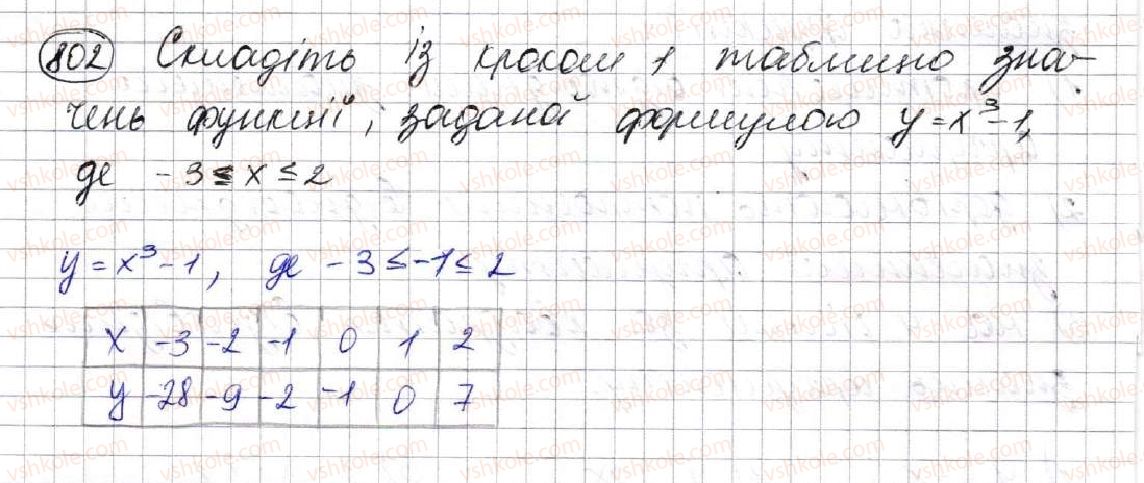 802 Складіть із кроком 1 таблицю зна-
чень функції, заданої формулою y = x³ - 1,
де - 3 ≤ x ≤ 2
y = x³ - 1, де - 3 ≤ -1 ≤ 2
x -3 -2 -1 0 1 2
y -28 -9 -2 -1 0 7
vshkole.com